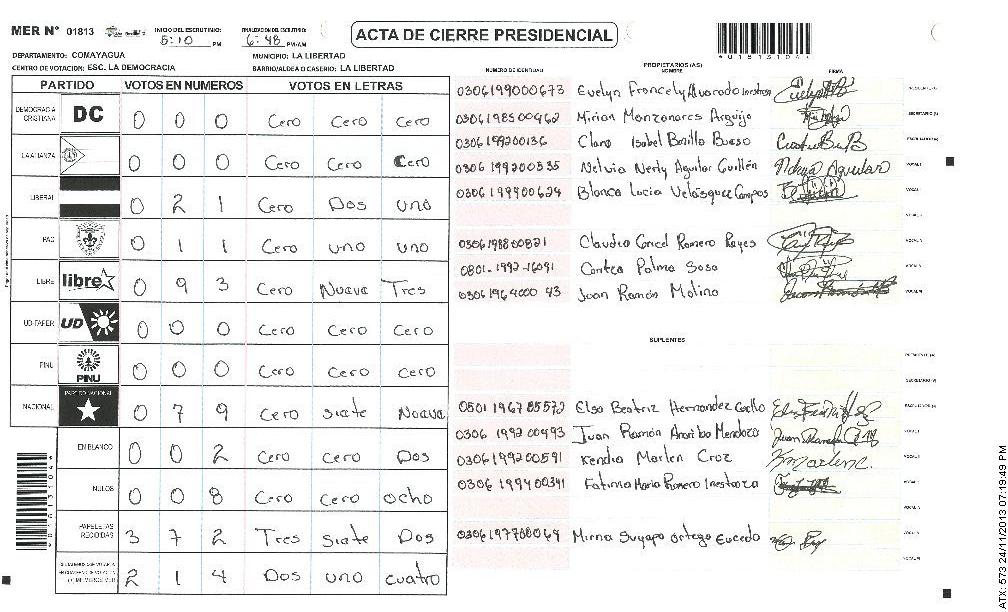 MER Nº 01813
INICIO DEL ESCRUTINIO: 5:10 PM
FINALIZACION DEL ESCRUTINIO: 6:48 PM/AM
ACTA DE CIERRE PRESIDENCIAL
DEPARTAMENTO: COMAYAGUA
MUNICIPIO: LA LIBERTAD
CENTRO DE VOTACION: ESC. LA DEMOCRACIA
BARRIO/ALDEA O CASERIO: LA LIBERTAD
PARTIDO VOTOS EN NUMEROS VOTOS EN LETRAS
DEMOCRACIA CRISTIANA DC 0 0 0 Cero Cero Cero
LA ALIANZA 0 0 0 Cero Cero Cero
LIBERAL 0 2 1 Cero Dos uno
PAC 0 1 1 Cero uno uno
LIBRE libre 0 9 3 Cero Nueve Tres
UD-FAPER UD 0 0 0 Cero Cero Cero
PINU PINU 0 0 0 Cero Cero cero
NACIONAL PARTIDO NACIONAL 0 7 9 Cero siete Nueve
EN BLANCO 0 0 2 Cero Cero Dos
NULOS 0 0 8 Cero Cero ocho
PAPELETAS RECIBIDAS 3 7 2 Tres siete Dos
2 1 4 Dos uno cuatro
NUMERO DE IDENTIDAD PROPIETARIOS (AS) NOMBRE FIRMA
0306199000673 Evelyn Francely Alvarado
0306198500462 Mirian Manzanares Arguijo
0306199200136 Clara Isabel Bonilla Bueso
0306199200535 Nelvia Nerly Aguilar Guillén
0306199900624 Blanca Lucia Velásquez Campos
0306198800821 Claudia Romero Reyes
0801-1992-16091 Palma Sosa
0306196400043 Juan Ramón Molina
SUPLENTES
0501196785572 Elsa Beatriz Hernandez Coello
0306199200493 Juan Ramón Mendoza
0306199200591 Kendia Marlen Cruz
0306199400341 Fatima Maria Romero Inestroza
0306197700069 Mirna Suyapa Ortega Eucedo
*01813104*
ATX: 573 24/11/2013 07:19:49 PM